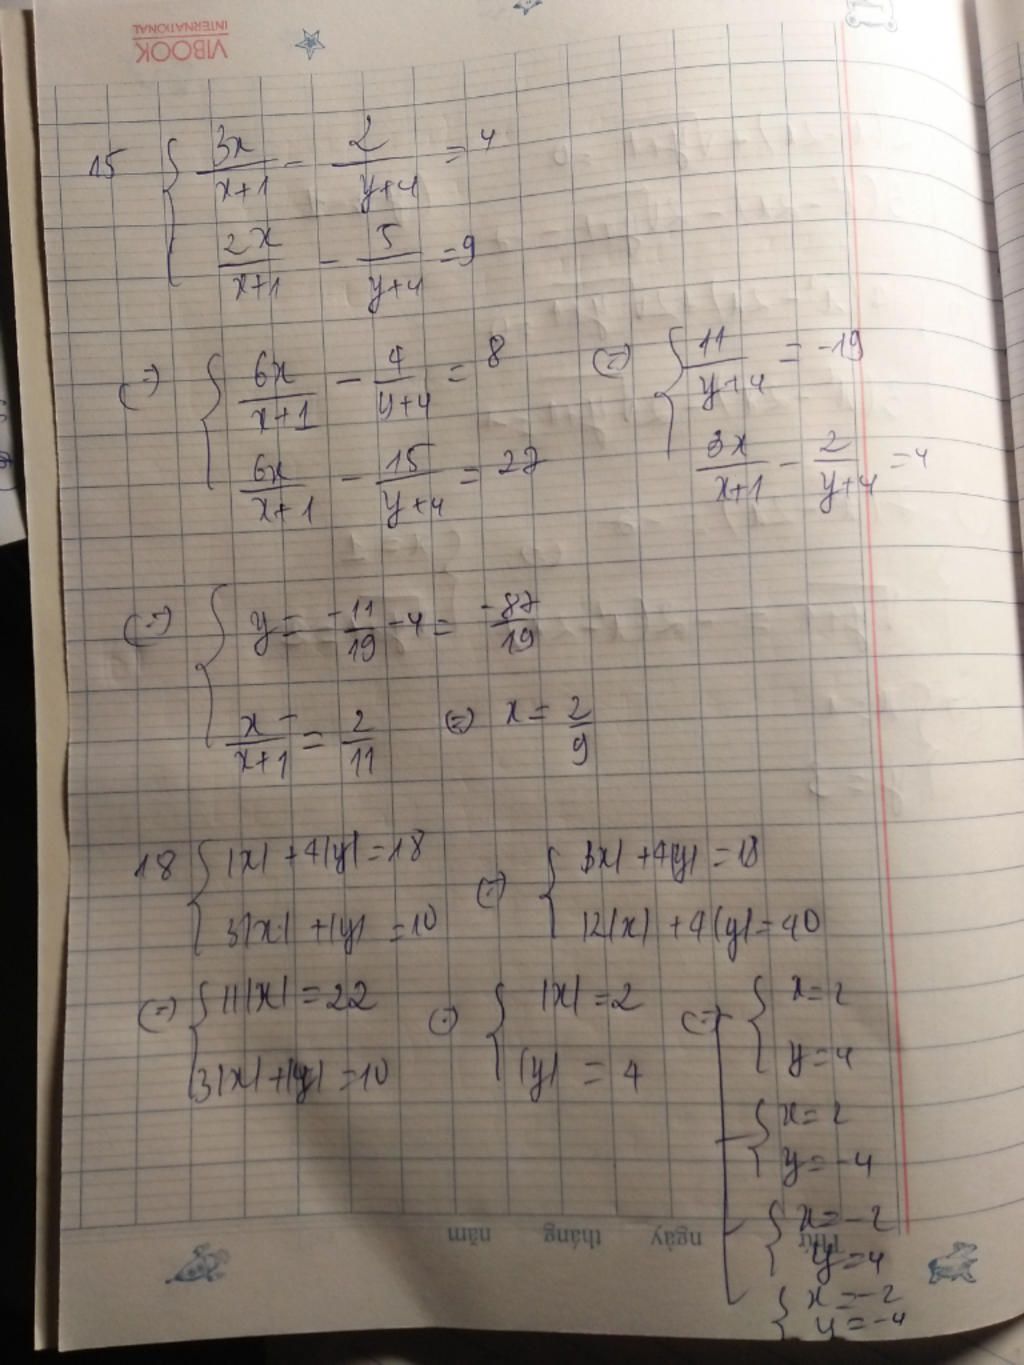 VIBOOK
INTERNATIONAL
15 { 3x/(x+1) - 2/(y+4) = 4
2x/(x+1) - 5/(y+4) = 9
(=) { 6x/(x+1) - 4/(y+4) = 8 (=) { 11/(y+4) = -19
6x/(x+1) - 15/(y+4) = 27 3x/(x+1) - 2/(y+4) = 4
(=) { y = -11/19 - 4 = -87/19
x/(x+1) = 2/11 (=) x = 2/9
18 { |x| + 4|y| = 18 (=) { |x| + 4|y| = 18
3|x| + |y| = 10 12|x| + 4|y| = 40
(=) { 11|x| = 22 (=) { |x| = 2 (=) [ { x = 2
3|x| + |y| = 10 |y| = 4 y = 4
{ x = 2
y = -4
{ x = -2
y = 4
{ x = -2
y = -4
Thứ ngày tháng năm